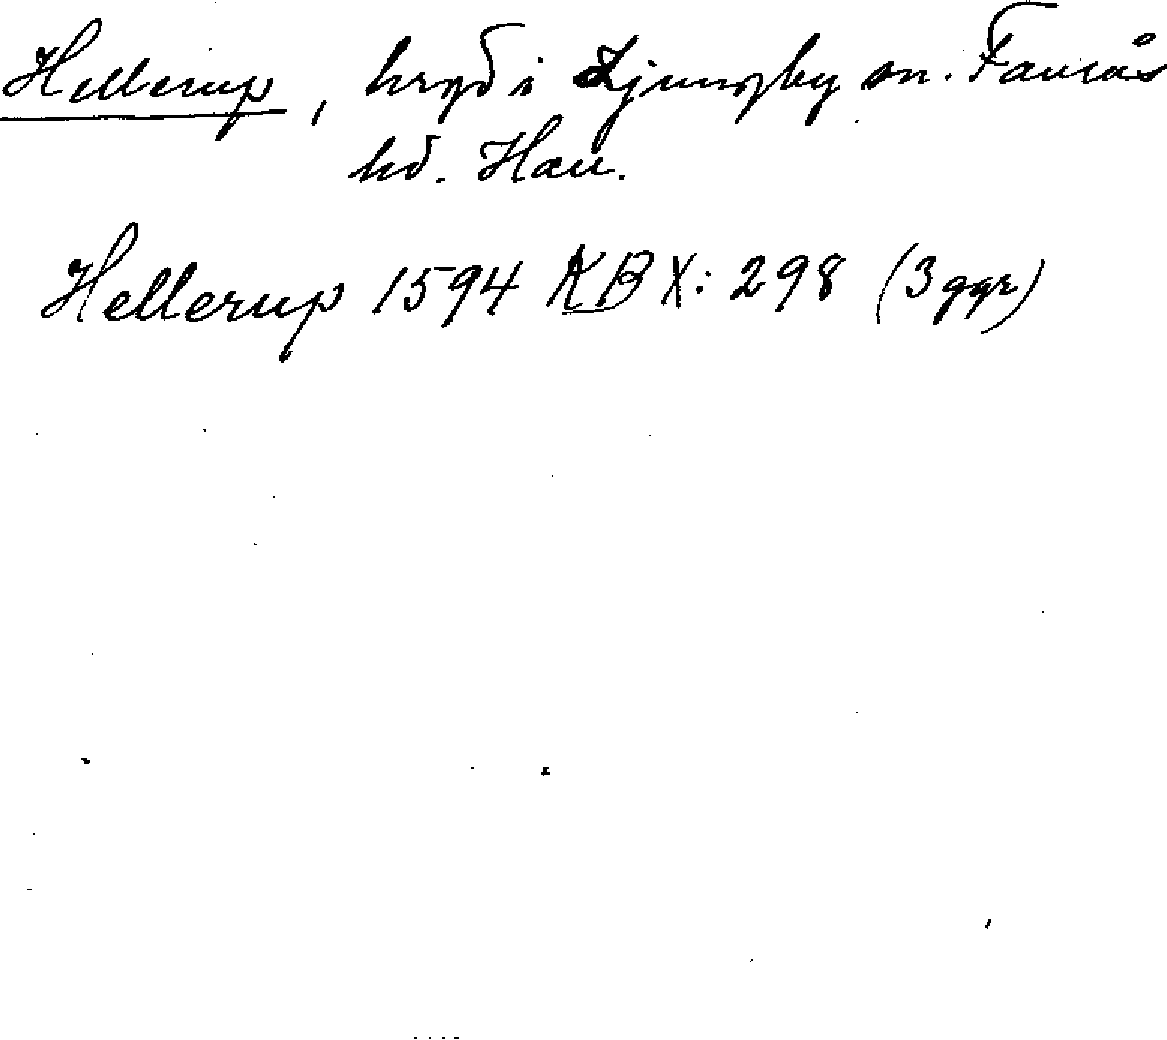 Hellerup, hrgd i Ljungby sn. Faurås
hd. Hall.
Hellerup 1594 KB X: 298 (3 ggr)